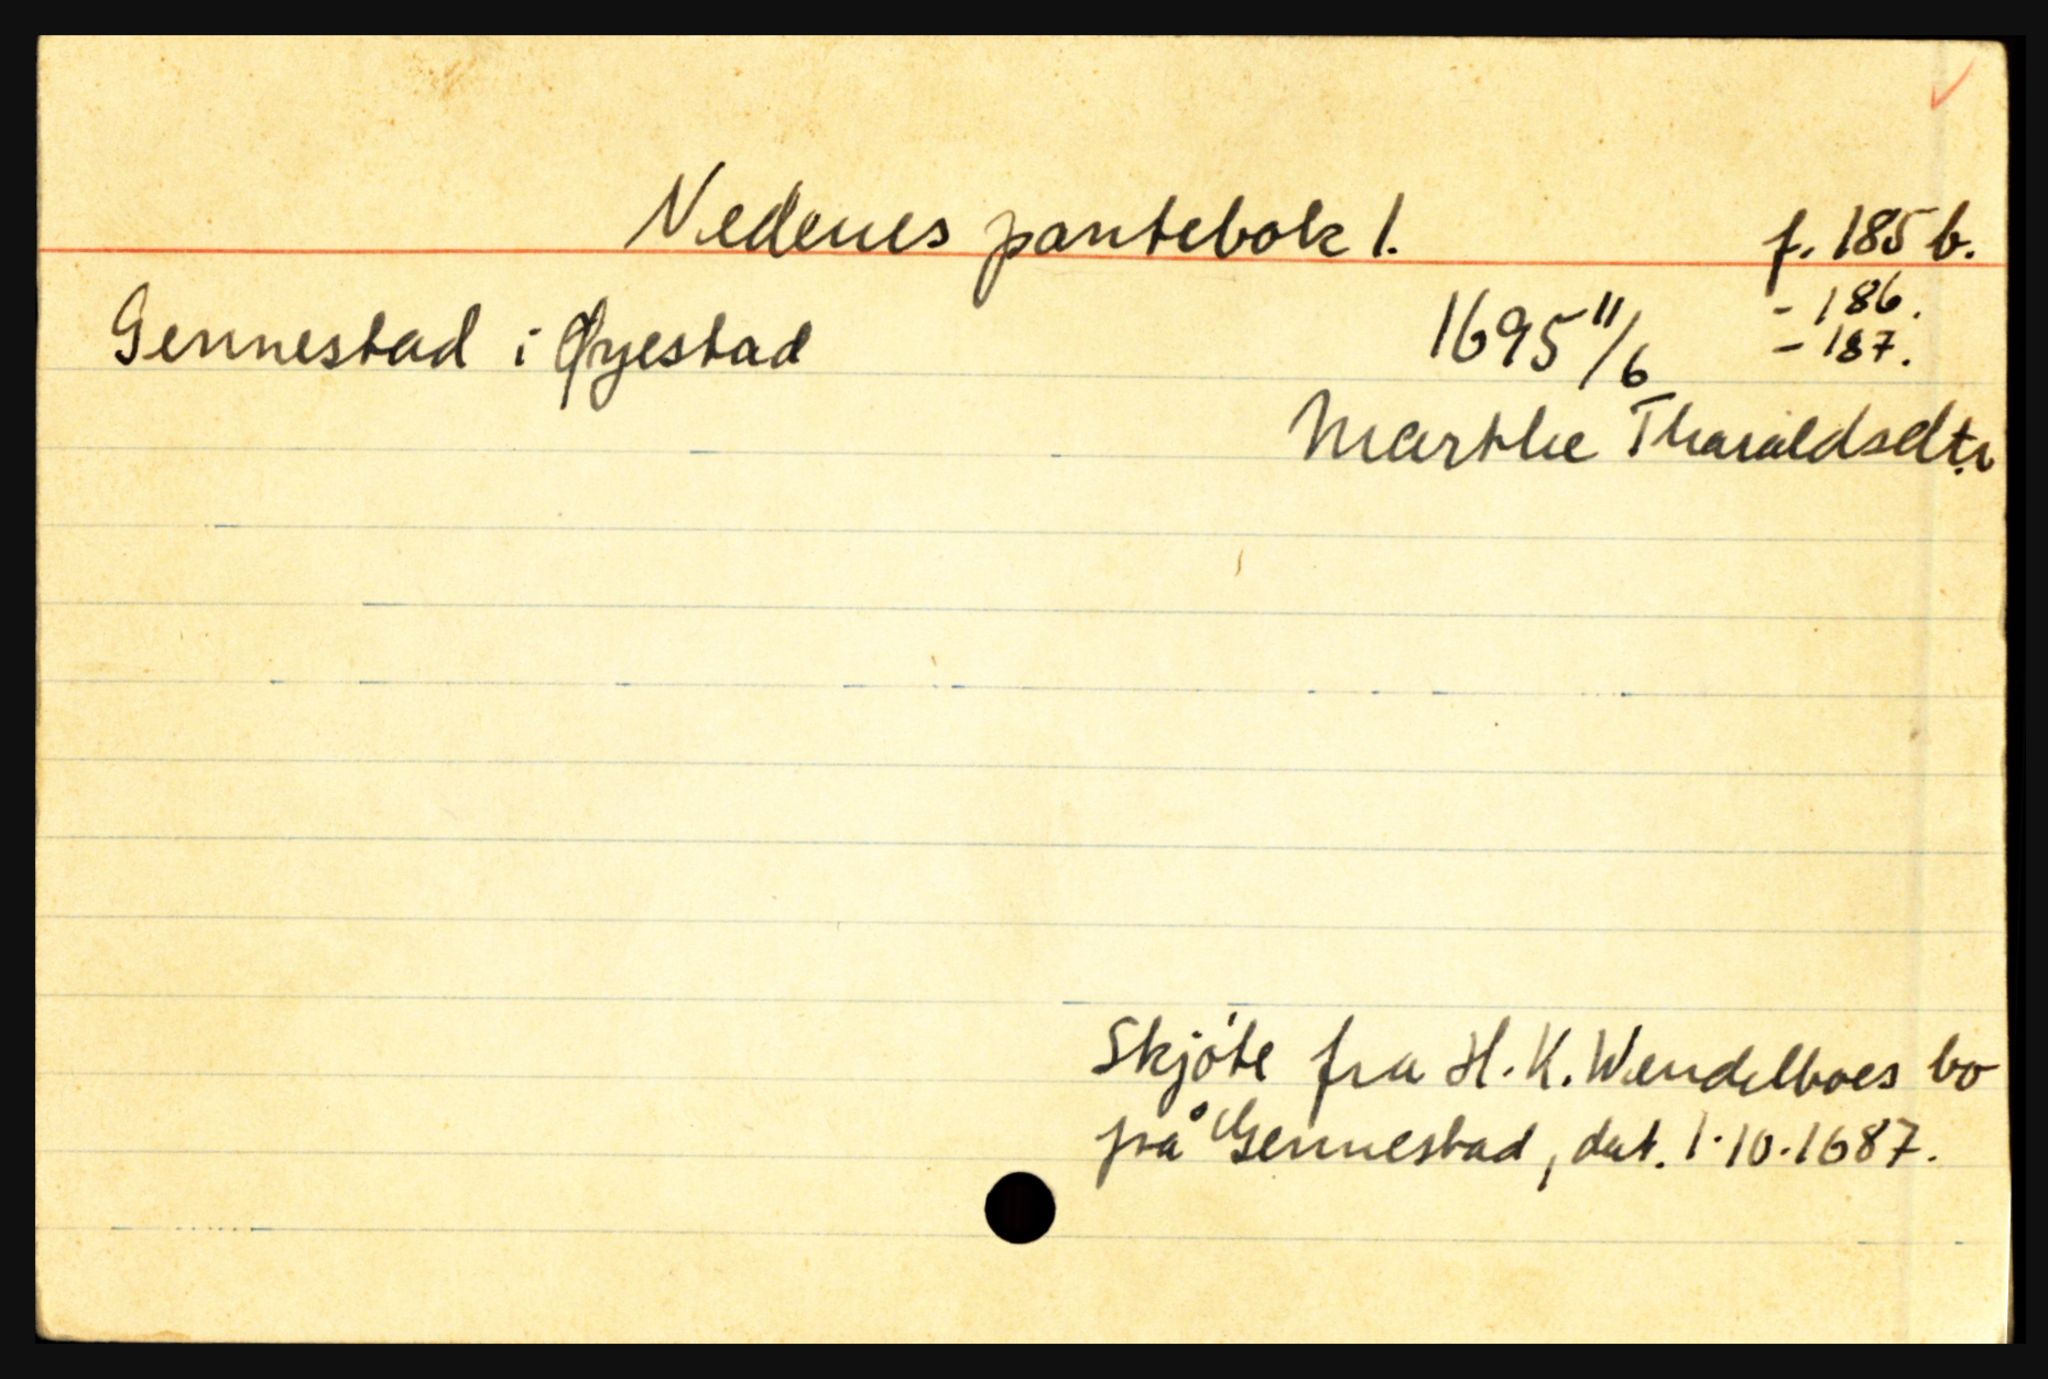 Nedenes pantebok 1. f. 185 b.
Gennestad i Øyestad 1695 11/6 - 186.
- 187.
Marthe Tharaldsdtr
Skjöte fra H. K. Wendelboes bo
på Gennestad, dat. 1.10.1687.